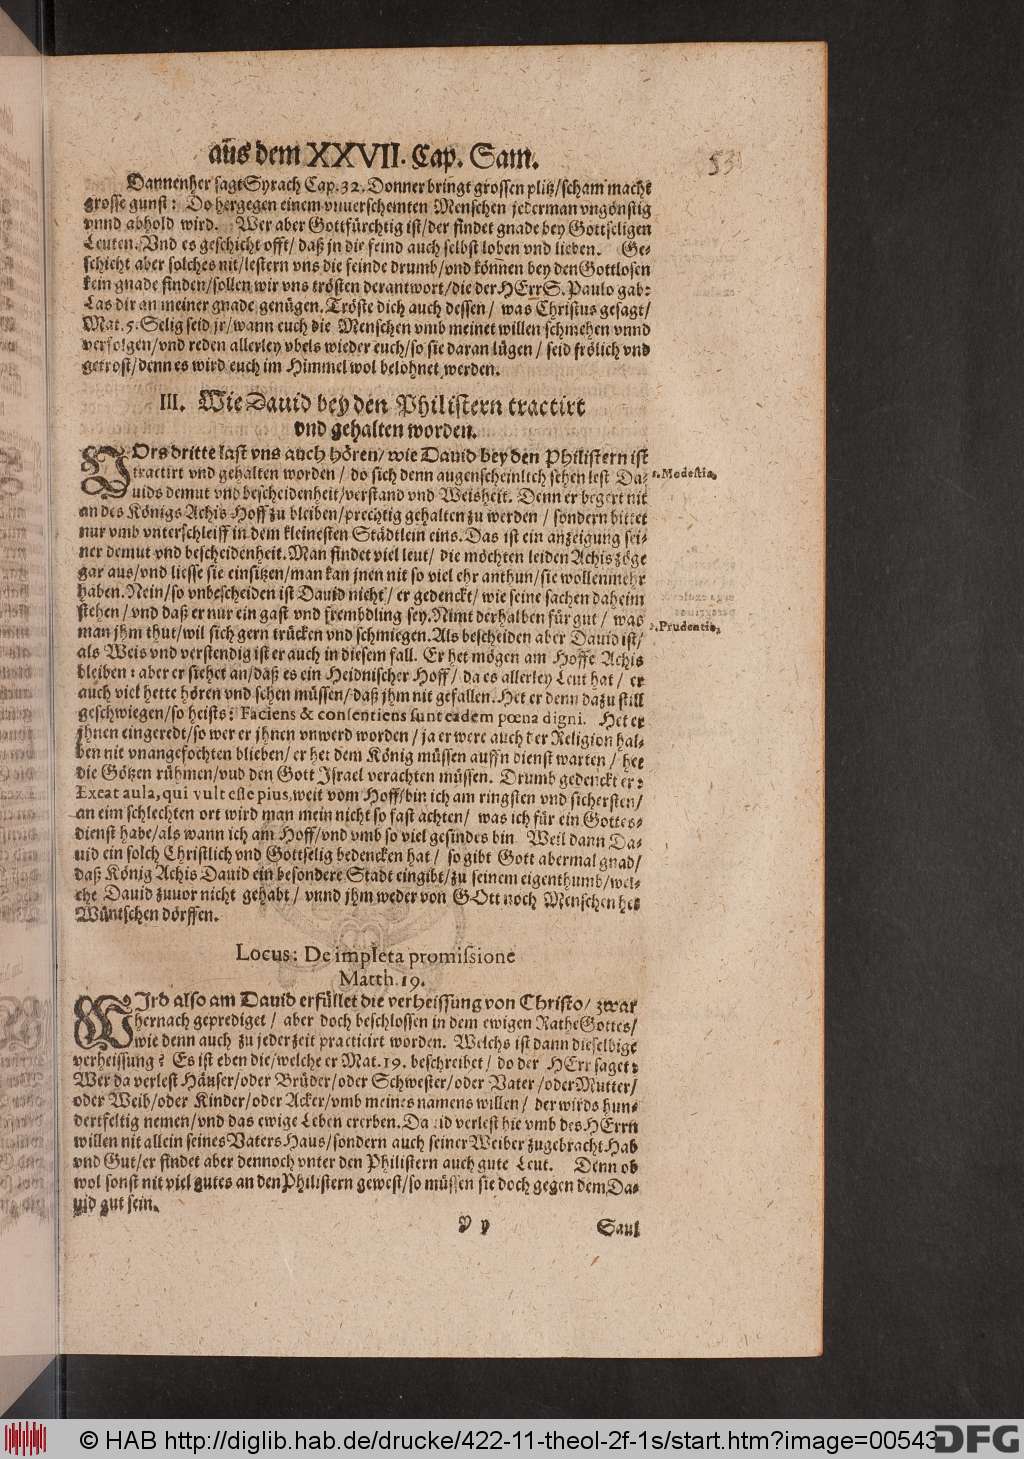 aus dem XXVII. Cap. Sam.
53
Dannenher sagt Syrach Cap. 32. Donner bringt grossen plitz/ scham macht
grosse gunst: Do hergegen einem vnuerschemten Menschen jederman vngönstig
vnnd abhold wird. Wer aber Gottfürchtig ist/ der findet gnade bey Gottseligen
Leuten. Vnd es geschicht offt/ daß jn die feind auch selbst loben vnd lieben. Ge-
schicht aber solches nit/ lestern vns die feinde drumb/ vnd können bey den Gottlosen
kein gnade finden/ sollen wir vns trösten der antwort/ die der HErr S. Paulo gab:
Las dir an meiner gnade genügen. Tröste dich auch dessen/ was Christus gesagt/
Mat. 5. Selig seid jr/ wann euch die Menschen vmb meinet willen schmehen vnnd
verfolgen/ vnd reden allerley vbels wieder euch/ so sie daran lügen/ seid frölich vnd
getrost/ denn es wird euch im Himmel wol belohnet werden.
III. Wie Dauid bey den Philistern tractirt
vnd gehalten worden.
VOrs dritte last vns auch hören/ wie Dauid bey den Philistern ist
tractirt vnd gehalten worden/ do sich denn augenscheinlich sehen lest Da-
uids demut vnd bescheidenheit/ verstand vnd Weisheit. Denn er begert nit
1. Modestia,
an des Königs Achis Hoff zu bleiben/ prechtig gehalten zu werden/ sondern bittet
nur vmb vnterschleiff in dem kleinesten Städtlein eins. Das ist ein anzeigung sei-
ner demut vnd bescheidenheit. Man findet viel leut/ die möchten leiden Achis zöge
gar aus/ vnd liesse sie einsitzen/ man kan jnen nit so viel ehr anthun/ sie wollen mehr
haben. Nein/ so vnbescheiden ist Dauid nicht/ er gedenckt/ wie seine sachen daheim
stehen/ vnd daß er nur ein gast vnd frembdling sey. Nimt derhalben für gut/ was
man jhm thut/ wil sich gern trücken vnd schmiegen. Als bescheiden aber Dauid ist/
2. Prudentia,
als Weis vnd verstendig ist er auch in diesem fall. Er het mögen am Hoffe Achis
bleiben: aber er siehet an/ daß es ein Heidnischer Hoff/ da es allerley Leut hat/ er
auch viel hette hören vnd sehen müssen/ daß jhm nit gefallen. Het er denn dazu still
geschwiegen/ so heists: Faciens & consentiens sunt eadem pœna digni. Het er
jhnen eingeredt/ so wer er jhnen vnwerd worden/ ja er were auch der Religion hal-
ben nit vnangefochten blieben/ er het dem König müssen auffn dienst warten/ het
die Götzen rühmen/ vnd den Gott Israel verachten müssen. Drumb gedenckt er:
Exeat aula, qui vult esse pius, weit vom Hoff/ bin ich am ringsten vnd sichersten/
an eim schlechten ort wird man mein nicht so fast achten/ was ich für ein Gottes-
dienst habe/ als wann ich am Hoff/ vnd vmb so viel gesindes bin Weil dann Da-
uid ein solch Christlich vnd Gottselig bedencken hat/ so gibt Gott abermal gnad/
daß König Achis Dauid ein besondere Stadt eingibt/ zu seinem eigenthumb/ wel-
che Dauid zuuor nicht gehabt/ vnnd jhm weder von GOtt noch Menschen het
Wüntschen dörffen.
Locus: De impleta promissione
Matth. 19.
WIrd also am Dauid erfüllet die verheissung von Christo/ zwar
hernach geprediget/ aber doch beschlossen in dem ewigen Rathe Gottes/
wie denn auch zu jederzeit practicirt worden. Welchs ist dann dieselbige
verheissung? Es ist eben die/ welche er Mat. 19. beschreibet/ do der HErr saget:
Wer da verlest Häuser/ oder Brüder/ oder Schwester/ oder Vater/ oder Mutter/
oder Weib/ oder Kinder/ oder Acker/ vmb meines namens willen/ der wirds hun-
dertfeltig nemen/ vnd das ewige Leben ererben. Dauid verlest hie vmb des HErrn
willen nit allein seines Vaters Haus/ sondern auch seiner Weiber zugebracht Hab
vnd Gut/ er findet aber dennoch vnter den Philistern auch gute Leut. Denn ob
wol sonst nit viel gutes an den Philistern gewest/ so müssen sie doch gegen dem Da-
uid gut sein.
Y y
Saul
© HAB http://diglib.hab.de/drucke/422-11-theol-2f-1s/start.htm?image=00543
DFG